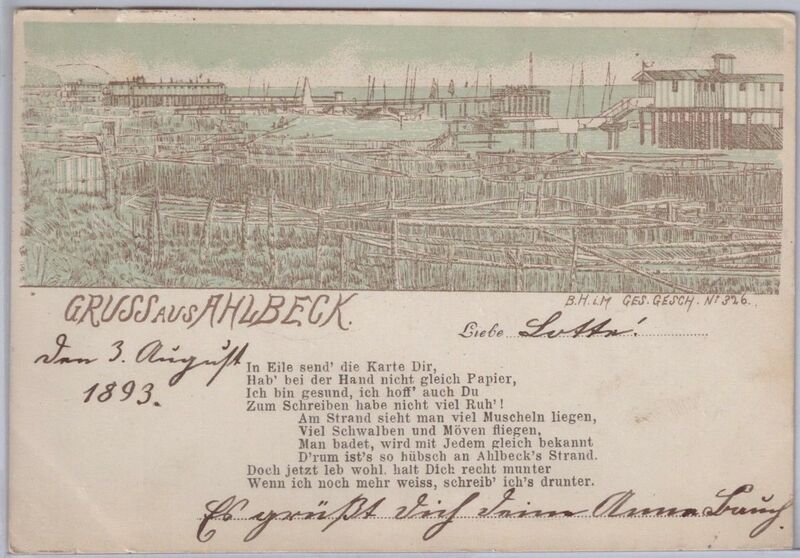 GRUSS AUS AHLBECK.
B.H.i.M GES. GESCH. No 326.
Liebe Lotte!
Den 3. August
1893.
In Eile send' die Karte Dir,
Hab' bei der Hand nicht gleich Papier,
Ich bin gesund, ich hoff' auch Du
Zum Schreiben habe nicht viel Ruh'!
Am Strand sieht man viel Muscheln liegen,
Viel Schwalben und Möven fliegen,
Man badet, wird mit Jedem gleich bekannt
D'rum ist's so hübsch an Ahlbeck's Strand.
Doch jetzt leb wohl. halt Dich recht munter
Wenn ich noch mehr weiss, schreib' ich's drunter.
Es grüßt dich deine Anna Bauch.